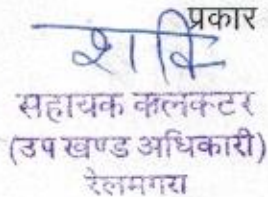 प्रकार
शक्ति
सहायक कलक्टर
(उप खण्ड अधिकारी)
रेलमगरा